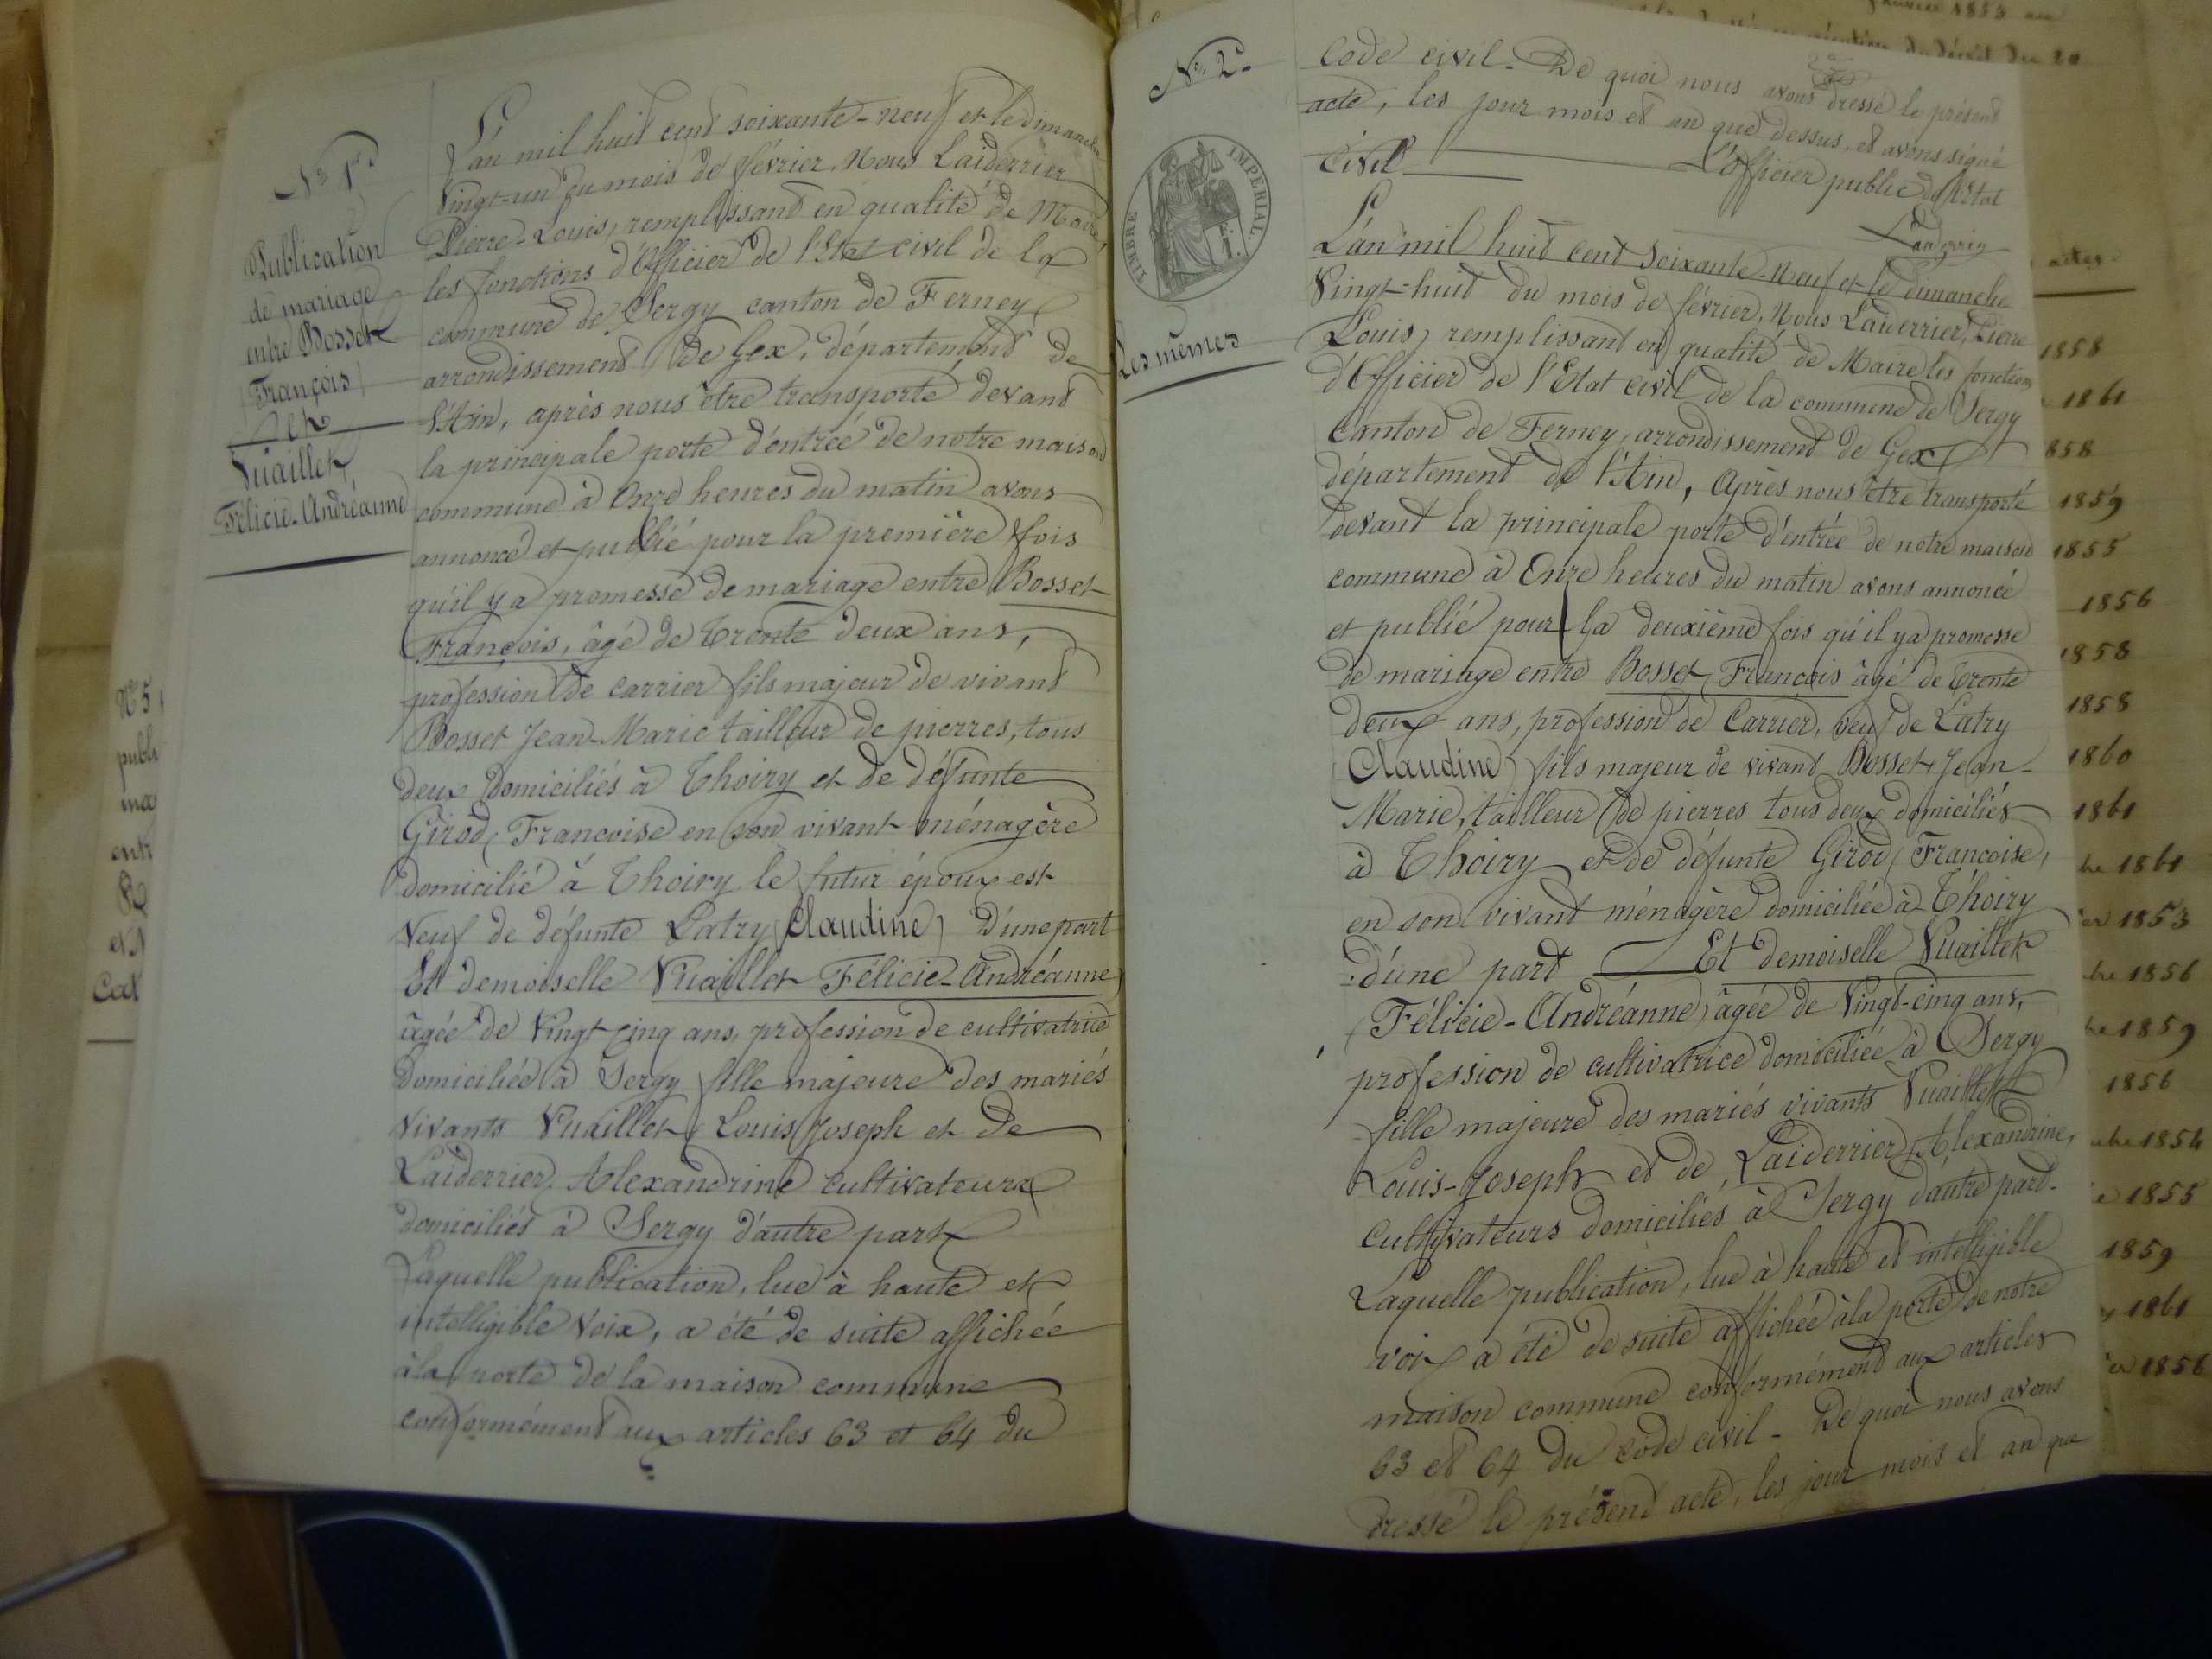 No 1er
Publication
de mariage
entre Bosset
François
et
Vuaillet
Félicie-Andréanne
L'an mil huit cent soixante-neuf et le dimanche
vingt-un du mois de février, Nous Laiderrier
Pierre-Louis, remplissant en qualité de Maire,
les fonctions d'Officier de l'Etat civil de la
commune de Sergy canton de Ferney
arrondissement de Gex, département de
l'Ain, après nous être transporté devant
la principale porte d'entrée de notre maison
commune à Onze heures du matin avons
annoncé et publié pour la première fois
qu'il y a promesse de mariage entre Bosset
François, âgé de Trente deux ans,
profession de carrier fils majeur de vivant
Bosset Jean-Marie tailleur de pierres, tous
deux domiciliés à Thoiry et de défunte
Girod, Francoise en son vivant ménagère
domicilié à Thoiry le futur époux est
Veuf de défunte Latry Claudine, D'une part
Et demoiselle Vuaillet Félicie-Andréanne
âgée de Vingt-cinq ans, profession de cultivatrice
Domiciliée à Sergy fille majeure des mariés
vivants Vuaillet, Louis Joseph et de
Laiderrier Alexandrine cultivateurs
domiciliés à Sergy d'autre part
Laquelle publication, lue à haute et
intelligible Voix, a été de suite affichée
à la porte de la maison commune
conformément aux articles 63 et 64 du
No 2e
TIMBRE IMPERIAL.
Les mêmes
Code civil. De quoi nous avons dressé le présent
acte, les jour mois et an que dessus, et avons signé
L'officier public de l'Etat
Civil
L'an mil huit cent soixante-Neuf et le dimanche
Vingt-huit du mois de février, Nous Laiderrier, Pierre
Louis, remplissant en qualité de Maire les fonctions
d'Officier de l'Etat civil de la commune de Sergy
Canton de Ferney, arrondissement de Gex
département de l'Ain, Après nous être transporté
devant la principale porte d'entrée de notre maison
commune à Onze heures du matin avons annoncé
et publié pour la deuxième fois qu'il y a promesse
de mariage entre Bosset François âgé de Trente
deux ans, profession de Carrier, veuf de Latry
Claudine, fils majeur de vivant Bosset, Jean-
Marie, tailleur de pierres tous deux domiciliés
à Thoiry et de défunte Girod, Francoise,
en son vivant ménagère domiciliée à Thoiry
d'une part Et demoiselle Vuaillet
Félicie-Andréanne, âgée de Vingt-cinq ans,
profession de cultivatrice domiciliée à Sergy
fille majeure des mariés vivants Vuaillet
Louis-Joseph et de Laiderrier, Alexandrine,
Cultivateurs domiciliés à Sergy d'autre part.
Laquelle publication, lue à haute et intelligible
voix a été de suite affichée à la porte de notre
maison commune conformément aux articles
63 et 64 du code civil. De quoi nous avons
dressé le présent acte, les jour mois et an que
No 5
publi
ma
entr
et
Cat
janvier 1853
actes
1858
1861
858
1859
1855
1856
1858
1858
1860
1861
1861
1853
1856
1859
1856
1854
1855
1859
1861
1856